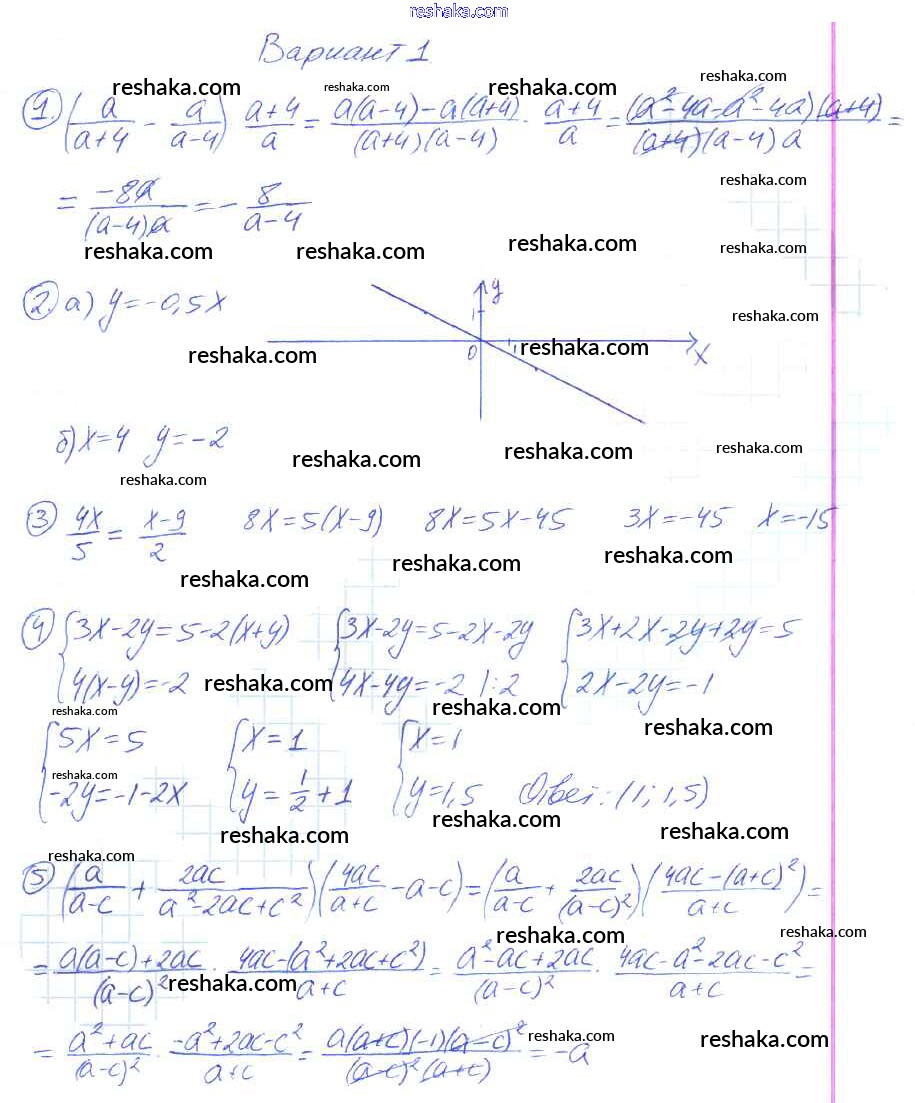 reshaka.com
Вариант 1
reshaka.com reshaka.com reshaka.com reshaka.com
1. (a/(a+4) - a/(a-4)) · (a+4)/a = (a(a-4)-a(a+4))/((a+4)(a-4)) · (a+4)/a = ((a²-4a-a²-4a)(a+4))/((a+4)(a-4)a) =
reshaka.com
= -8a/((a-4)a) = - 8/(a-4)
reshaka.com reshaka.com reshaka.com reshaka.com
2. а) y=-0,5x
y 1 0 1 x
reshaka.com
reshaka.com reshaka.com
б) x=4 y=-2
reshaka.com reshaka.com reshaka.com
reshaka.com
3 4x/5 = (x-9)/2 8x=5(x-9) 8x=5x-45 3x=-45 x=-15
reshaka.com reshaka.com reshaka.com
4 {3x-2y=5-2(x+y) {3x-2y=5-2x-2y {3x+2x-2y+2y=5
4(x-y)=-2 reshaka.com 4x-4y=-2 |:2 2x-2y=-1
reshaka.com reshaka.com reshaka.com
{5x=5 {x=1 {x=1
reshaka.com
-2y=-1-2x y=1/2+1 y=1,5 Ответ: (1; 1,5)
reshaka.com reshaka.com reshaka.com
reshaka.com
5 (a/(a-c) + 2ac/(a²-2ac+c²))(4ac/(a+c) -a-c)=(a/(a-c) + 2ac/(a-c)²)((4ac-(a+c)²)/(a+c))=
reshaka.com reshaka.com
= (a(a-c)+2ac)/(a-c)² · (4ac-(a²+2ac+c²))/(a+c) = (a²-ac+2ac)/(a-c)² · (4ac-a²-2ac-c²)/(a+c) =
reshaka.com reshaka.com
= (a²+ac)/(a-c)² · (-a²+2ac-c²)/(a+c) = (a(a+c)(-1)(a-c)²)/((a-c)²(a+c)) = -a
reshaka.com reshaka.com